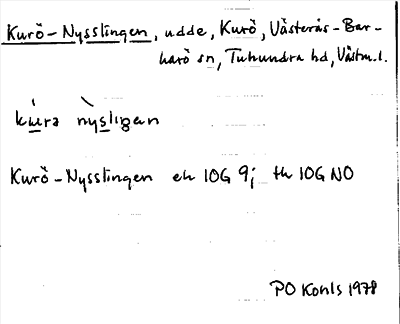 Kurö-Nysslingen, udde, Kurö, Västerås-Bar-
karö sn, Tuhundra hd, Västm.l.
kúra nỳslıgan
Kurö-Nysslingen ek 10G 9; th 10G NO
PO Kohls 1978